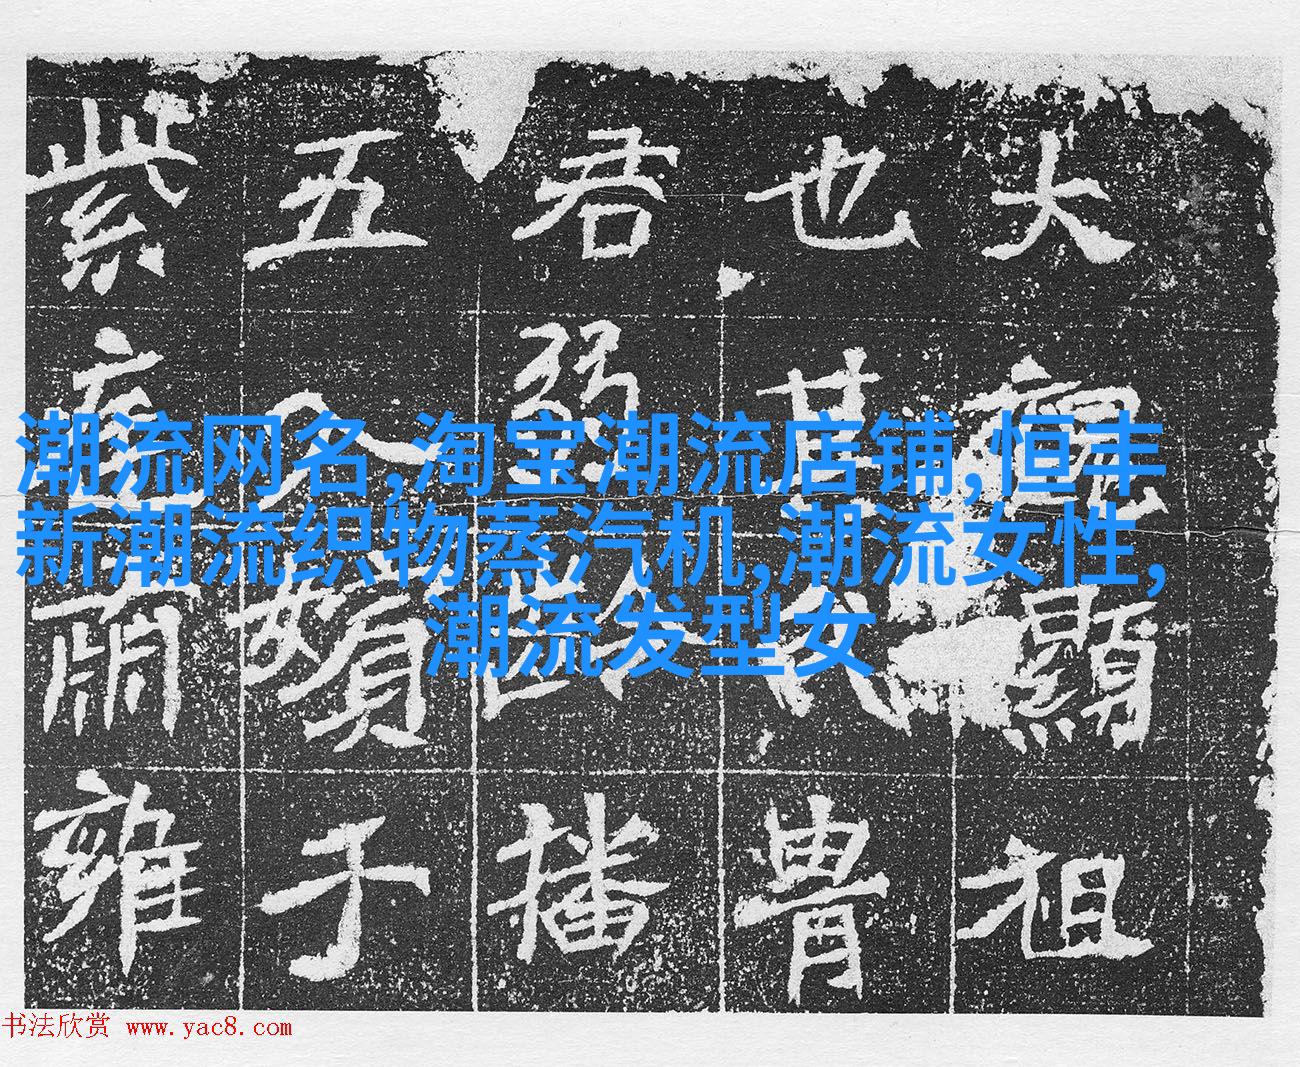 大 顯祖
也其 冑
君弱 播
五入嬪于
紫庭肅雍
潮流网名,淘宝潮流店铺,恒丰
新潮流织物蒸汽机,潮流女性,
潮流发型女
书法欣赏 www.yac8.com